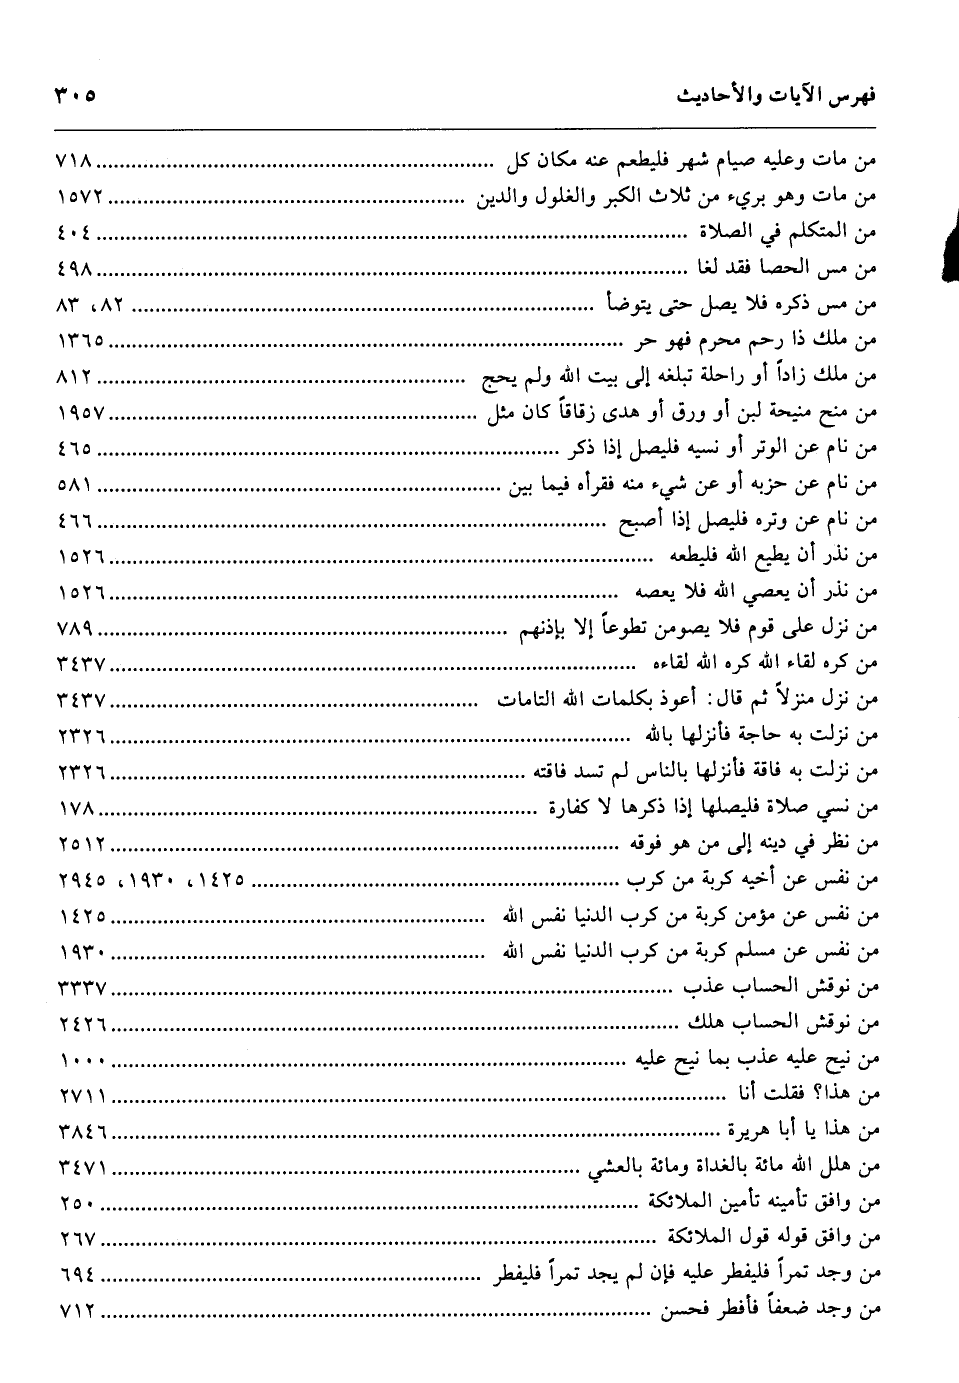 فهرس الآيات والأحاديث ٣٠٥
من مات وعليه صيام شهر فليطعم عنه مكان كل ........ ٧١٨
من مات وهو بريء من ثلاث الكبر والغلول والدين ........ ١٥٧٢
من المتكلم في الصلاة ........ ٤٠٤
من مس الحصا فقد لغا ........ ٤٩٨
من مس ذكره فلا يصل حتى يتوضأ ........ ٨٢، ٨٣
من ملك ذا رحم محرم فهو حر ........ ١٣٦٥
من ملك زاداً أو راحلة تبلغه إلى بيت الله ولم يحج ........ ٨١٢
من منح منيحة لبن أو ورق أو هدى زقاقاً كان مثل ........ ١٩٥٧
من نام عن الوتر أو نسيه فليصل إذا ذكر ........ ٤٦٥
من نام عن حزبه أو عن شيء منه فقرأه فيما بين ........ ٥٨١
من نام عن وتره فليصل إذا أصبح ........ ٤٦٦
من نذر أن يطيع الله فليطعه ........ ١٥٢٦
من نذر أن يعصي الله فلا يعصه ........ ١٥٢٦
من نزل على قوم فلا يصومن تطوعاً إلا بإذنهم ........ ٧٨٩
من كره لقاء الله كره الله لقاءه ........ ٣٤٣٧
من نزل منزلاً ثم قال: أعوذ بكلمات الله التامات ........ ٣٤٣٧
من نزلت به حاجة فأنزلها بالله ........ ٢٣٢٦
من نزلت به فاقة فأنزلها بالناس لم تسد فاقته ........ ٢٣٢٦
من نسي صلاة فليصلها إذا ذكرها لا كفارة ........ ١٧٨
من نظر في دينه إلى من هو فوقه ........ ٢٥١٢
من نفس عن أخيه كربة من كرب ........ ١٤٢٥، ١٩٣٠، ٢٩٤٥
من نفس عن مؤمن كربة من كرب الدنيا نفس الله ........ ١٤٢٥
من نفس عن مسلم كربة من كرب الدنيا نفس الله ........ ١٩٣٠
من نوقش الحساب عذب ........ ٣٣٣٧
من نوقش الحساب هلك ........ ٢٤٢٦
من نيح عليه عذب بما نيح عليه ........ ١٠٠٠
من هذا؟ فقلت أنا ........ ٢٧١١
من هذا يا أبا هريرة ........ ٣٨٤٦
من هلل الله مائة بالغداة ومائة بالعشي ........ ٣٤٧١
من وافق تأمينه تأمين الملائكة ........ ٢٥٠
من وافق قوله قول الملائكة ........ ٢٦٧
من وجد تمراً فليفطر عليه فإن لم يجد تمراً فليفطر ........ ٦٩٤
من وجد ضعفاً فأفطر فحسن ........ ٧١٢